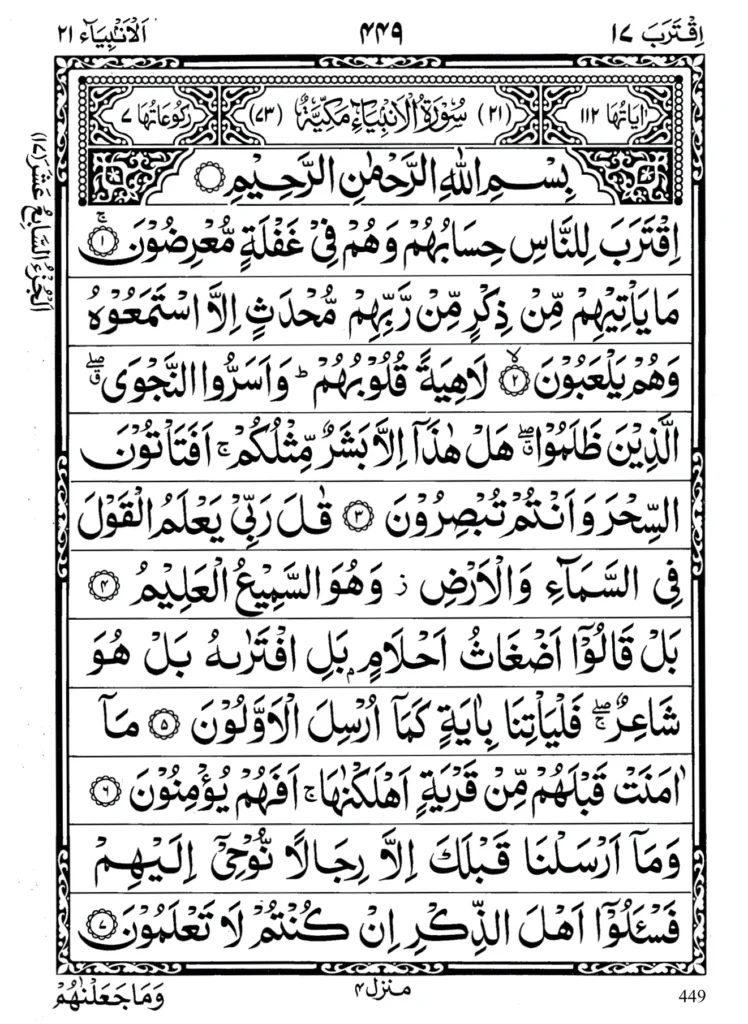 اِقْتَرَبَ ١٧ ٤٤٩ اَلْاَنْۢبِيَآء ٢١
اٰيَاتُهَا ١١٢ (٢١) سُوْرَةُ الْاَنْۢبِيَآءِ مَكِّيَّةٌ (٧٣) رُكُوْعَاتُهَا ٧
بِسْمِ اللّٰهِ الرَّحْمٰنِ الرَّحِيْمِ
اِقْتَرَبَ لِلنَّاسِ حِسَابُهُمْ وَهُمْ فِيْ غَفْلَةٍ مُّعْرِضُوْنَ ۚ ١
مَا يَاْتِيْهِمْ مِّنْ ذِكْرٍ مِّنْ رَّبِّهِمْ مُّحْدَثٍ اِلَّا اسْتَمَعُوْهُ
وَهُمْ يَلْعَبُوْنَ ۙ ٢ لَاهِيَةً قُلُوْبُهُمْ ؕ وَاَسَرُّوا النَّجْوَى ۖ ق
الَّذِيْنَ ظَلَمُوْا ۖ ق هَلْ هٰذَآ اِلَّا بَشَرٌ مِّثْلُكُمْ ۚ اَفَتَاْتُوْنَ
السِّحْرَ وَاَنْتُمْ تُبْصِرُوْنَ ٣ قٰلَ رَبِّيْ يَعْلَمُ الْقَوْلَ
فِي السَّمَآءِ وَالْاَرْضِ ز وَهُوَ السَّمِيْعُ الْعَلِيْمُ ٤
بَلْ قَالُوْٓا اَضْغَاثُ اَحْلَامٍۢ بَلِ افْتَرٰىهُ بَلْ هُوَ
شَاعِرٌ ۖۚ فَلْيَاْتِنَا بِاٰيَةٍ كَمَآ اُرْسِلَ الْاَوَّلُوْنَ ٥ مَآ
اٰمَنَتْ قَبْلَهُمْ مِّنْ قَرْيَةٍ اَهْلَكْنٰهَا ۚ اَفَهُمْ يُؤْمِنُوْنَ ٦
وَمَآ اَرْسَلْنَا قَبْلَكَ اِلَّا رِجَالًا نُّوْحِيْٓ اِلَيْهِمْ
فَسْـَٔلُوْٓا اَهْلَ الذِّكْرِ اِنْ كُنْتُمْ لَا تَعْلَمُوْنَ ٧
اَلْجُزْءُ السَّابِعُ عَشَرَ (١٧)
449 منزل ٤ وَمَا جَعَلْنٰهُمْ